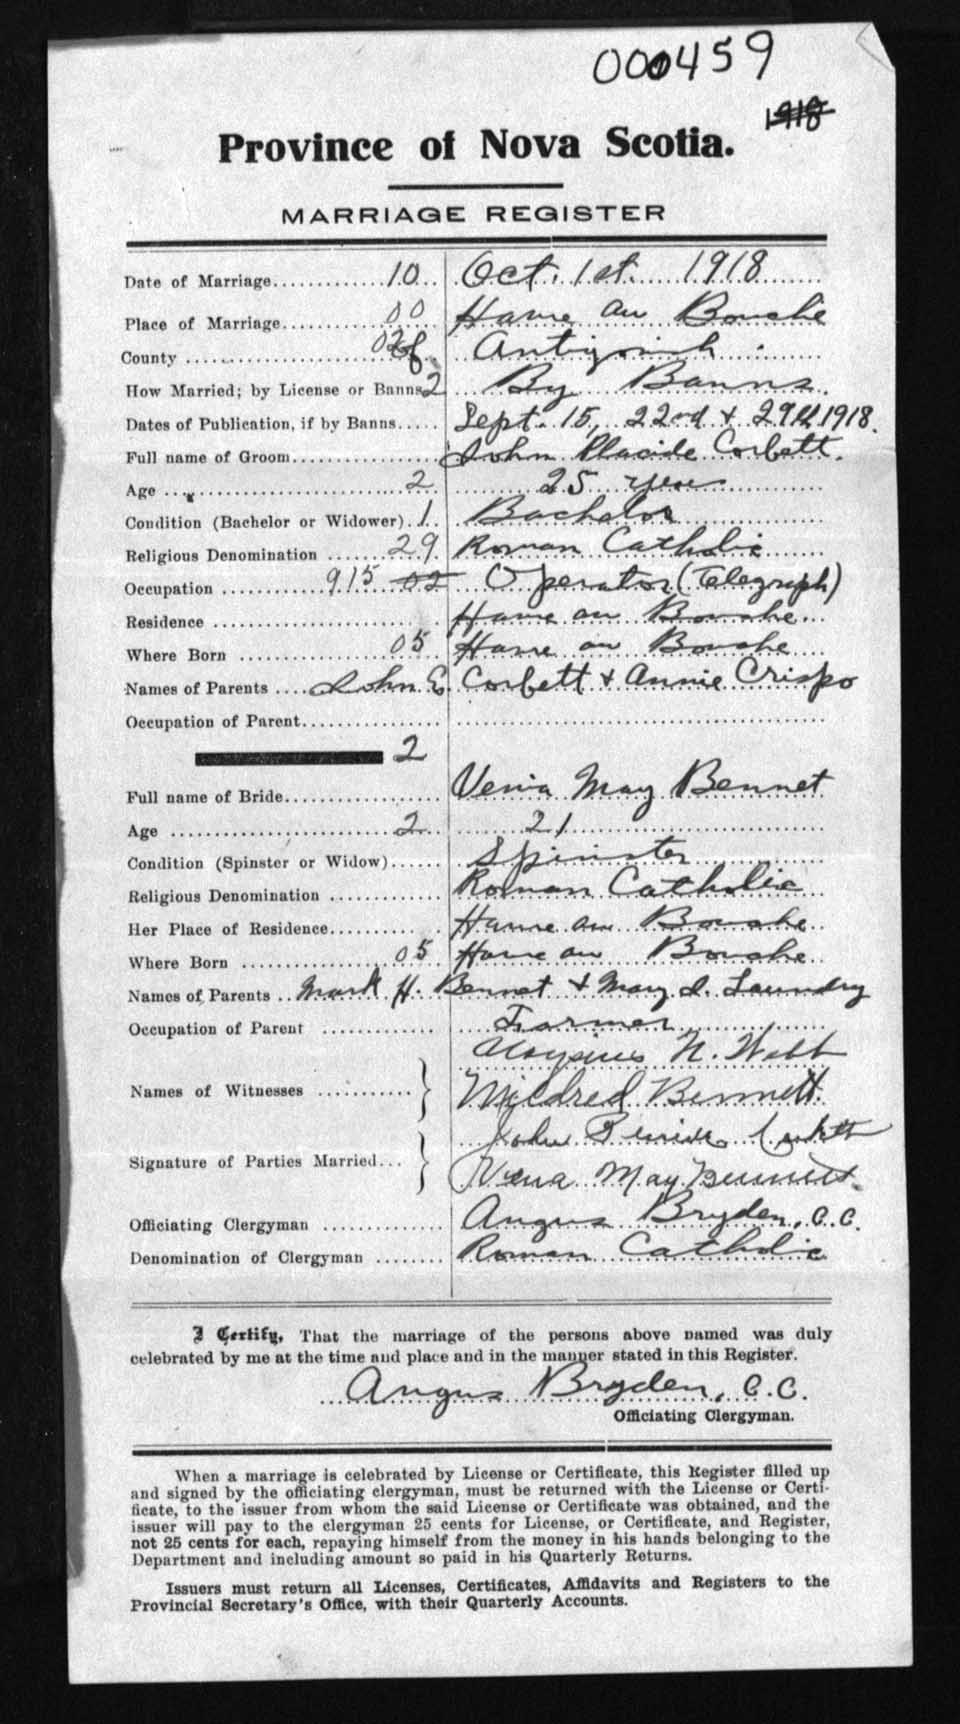 000459
1918
Province of Nova Scotia.
MARRIAGE REGISTER
Date of Marriage.............. 10 Oct. 1st. 1918
Place of Marriage............. 00 Havre au Bouche
County ................. Antigonish
How Married; by License or Banns 2 By Banns.
Dates of Publication, if by Banns..... Sept. 15, 22nd & 29th 1918.
Full name of Groom.................. John Placide Corbett.
Age ........................... 2 25 years
Condition (Bachelor or Widower).. 1 Bachelor
Religious Denomination ....... 29 Roman Catholic
Occupation ............ 915 02 Operator (Telegraph)
Residence ........................... Havre au Bouche.
Where Born .................. 05 Havre au Bouche
Names of Parents .... John E. Corbett & Annie Crispo
Occupation of Parent.................
2
Full name of Bride................... Venia May Bennet
Age ........................... 2 21
Condition (Spinster or Widow)...... Spinster
Religious Denomination ............. Roman Catholic
Her Place of Residence.............. Havre au Bouche
Where Born .................. 05 Havre au Bouche
Names of Parents .. Mark H. Bennet & Mary I. Laundry
Occupation of Parent .............. Farmer
Aloysius N. Webb
Names of Witnesses ........... } Mildred Bennett.
John Corbett
Signature of Parties Married... } Vena May Bennett.
Officiating Clergyman ............... Angus Bryden, C.C.
Denomination of Clergyman ........ Roman Catholic
I Certify, That the marriage of the persons above named was duly
celebrated by me at the time and place and in the manner stated in this Register.
Angus Bryden, C.C.
Officiating Clergyman.
When a marriage is celebrated by License or Certificate, this Register filled up
and signed by the officiating clergyman, must be returned with the License or Certi-
ficate, to the issuer from whom the said License or Certificate was obtained, and the
issuer will pay to the clergyman 25 cents for License, or Certificate, and Register,
not 25 cents for each, repaying himself from the money in his hands belonging to the
Department and including amount so paid in his Quarterly Returns.
Issuers must return all Licenses, Certificates, Affidavits and Registers to the
Provincial Secretary's Office, with their Quarterly Accounts.